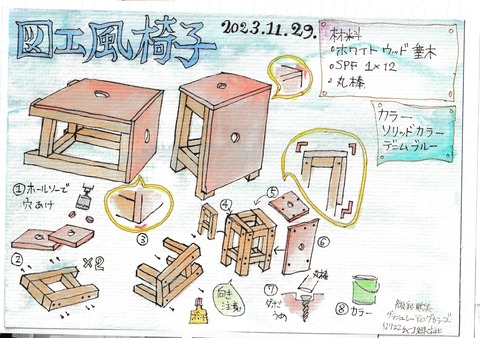 図工風椅子
2023.11.29.
材料
○ホワイトウッド垂木
○SPF 1×12
○丸棒
カラー
ソリッドカラー
デニムブルー
①ホールソーで
穴あけ
②
×2
③
④
⑤
⑥
向き
注意
⑦
丸棒
うめ
⑧カラー